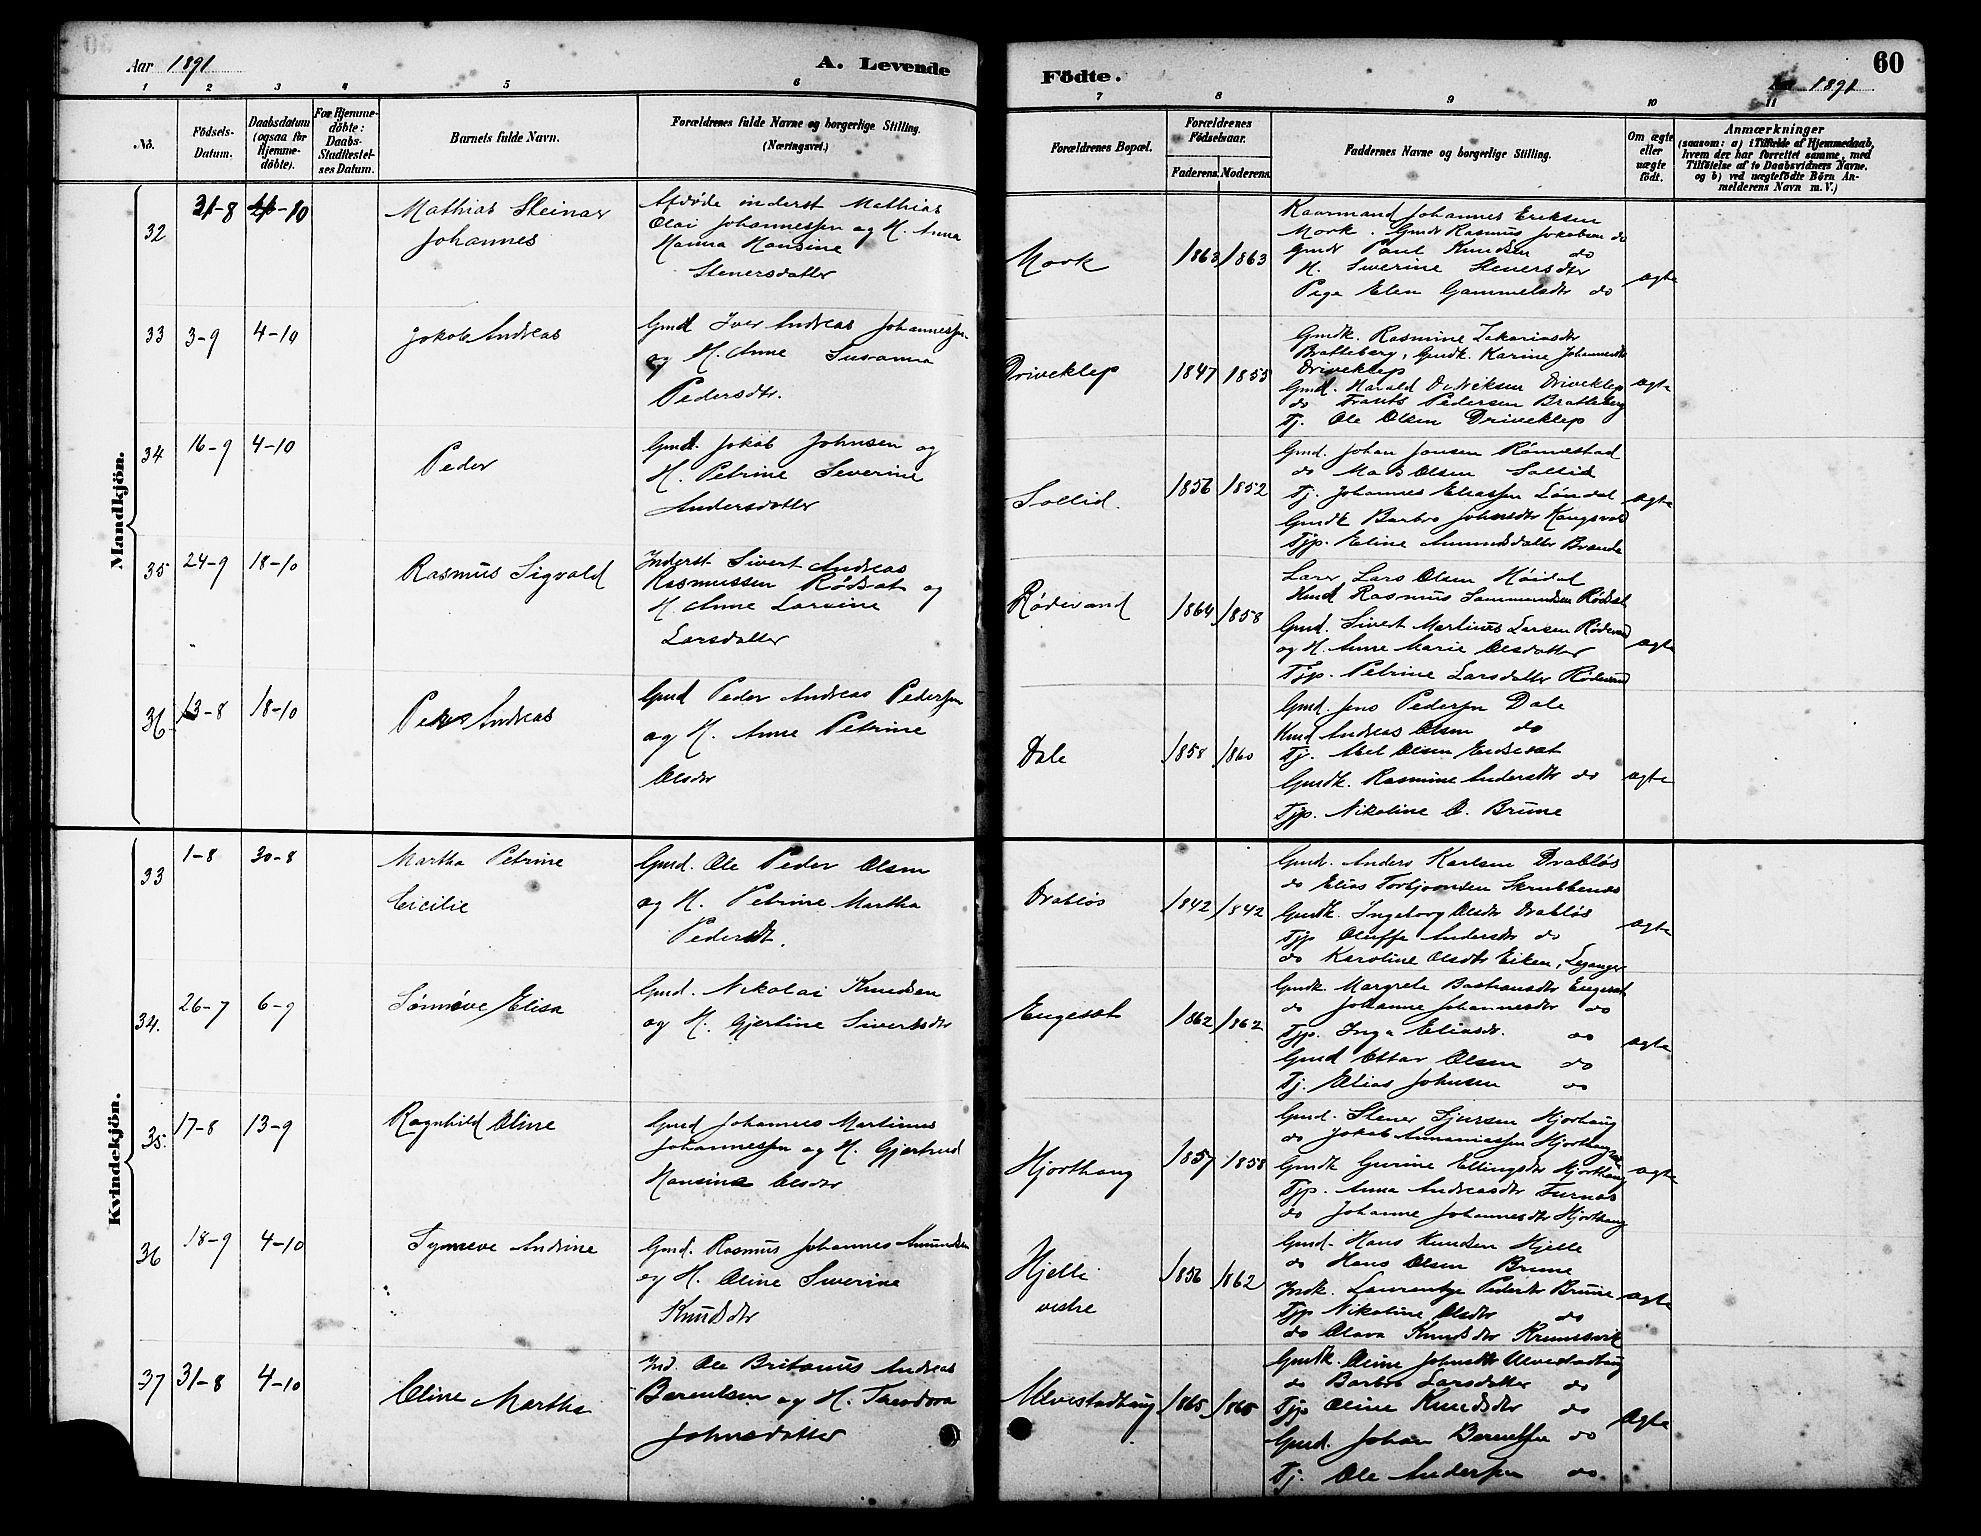 Aar 1891
A. Levende
Födte.
60
1891
1 2 3 4 5 6 7 8 9 10 11
No.
Födsels-Datum.
Daabsdatum (ogsaa for Hjemme-döbte).
For Hjemme-döbte: Daabs-Stadfæstel-ses Datum.
Barnets fulde Navn.
Forældrenes fulde Navne og borgerlige Stilling.
(Næringsvei.)
Forældrenes Bopæl.
Forældrenes Födselsaar.
Faderens. Moderens.
Faddernes Navne og borgerlige Stilling.
Om ægte eller uægte födt.
Anmærkninger
(saasom: a) i Tilfælde af Hjemmedaab, hvem der har forrettet samme, med Tilföielse af to Daabsvidners Navne. og b) ved uægtefödte Börn An-melderens Navn m. V.)
Mandkjön.
32 31-8 4-10
Mathias Steinar
Johannes
Afdøde inderst Mathias
Olai Johannessen og H. Anna
Hansine
Stenersdatter
Mork
1863 1863
Kaarmand Johannes Eriksen
Mork. Gmd Rasmus Jakobsen do
Gmd Paul Knudsen do
H. Severine Stenersdtr
Pige Elen Gammelsdtr do
ægte
33 3-9 4-10
Jakob Andreas
Gmd Iver Andreas Johannessen
og H. Anne Susanna
Pedersdtr.
Driveklep
1847 1855
Gmdk. Rasmine Zakariasdtr
Bratteberg, Gmdk. Karine Johannesdtr
Driveklep
Gmd. Harald Driveklep
do Frants Pedersen Bratteberg
Tj. Ole Olsen Driveklep
ægte
34 16-9 4-10
Peder
Gmd. Jokob Johnsen og
H. Petrine Severine
Andersdatter
Sollid.
1856 1852
Gmd. Johan Jonsen Rønnestad
do Mads Olsen Sollid
Tj. Johannes Eliassen
Gmdk Barbro Johnsdtr
Tjp. Eline
ægte
35 24-9 18-10
Rasmus Sigvald
Inderst Sivert Andreas
Rasmussen Rødsæt og
H. Anne Lovise
Larsdatter
Rødevand
1864 1858
Lærer Lars Olsen Høidal
Rasmus Rødsæt
Gmd. Sivert Martinus Larsen Rødevand
og H. Anne Marie Olsdatter
Tjp. Petrine Larsdatter Rødevand
ægte
36 13-8 18-10
Peder Andreas
Gmd Peder Andreas Pedersen
og H. Anne Petrine
Olsdtr
Dale
1858 1860
Gmd. Jens Pedersen Dale
Andreas Olsen do
Tj. Abel Olsen Endresæt
Gmdk. Rasmine Andersdtr do
Tjp. Nikoline O. Brune
ægte
Kvindekjön.
33 1-8 30-8
Martha Petrine
Cicilie
Gmd. Ole Peder Olsen
og H. Petrine Martha
Pedersdt.
Drabløs
1842 1842
Gmd. Anders Karlsen Drabløs
do Elias Torbjoernsen Skrubbenes
Gmdk. Ingeborg Olsdtr Drabløs
Tjp Oluffa Andersdtr do
do Karoline Olsdtr Eiken, Leganger
ægte
34. 26-7 6-9
Sønnøve Elisa
Gmd. Nikolai Knudsen
og H. Gjertine Sivertsdtr
Engesæt
1862 1862
Gmdk. Margrete Bastiansdtr Engesæt
do Johanne Johannesdtr do
Tjp. Inga Eliasdtr. do
Gmd Ottar Olsen do
Tj. Elias Johnsen do
ægte
35. 17-8 13-9
Ragnhild Oline
Gmd Johannes Martinus
Johannessen og H. Gjertrud
Hansine Olsdtr
Hjorthaug
1857 1858
Gmd. Stener Sjursen Hjorthaug
do Jokob Annaniassen Hjorthaug
Gmdk Gurine Ellingsdtr Hjorthaug
Tjp. Anna Andreasdtr Furnæs
do Johanne Johannesdtr Hjorthaug
ægte
36 18-9 4-10
Synneve Andrine
Gmd. Rasmus Johannes Amundsen
og H. Oline Severine
Knudsdtr
Hjelle
vestre
1856 1862
Gmd. Hans Knudsen Hjelle
do Hans Olsen Brune
Indk. Laurentze Pedersdtr Brune
Tjp Nikoline Olsdtr do
do Olava Knudsdtr
ægte
37 31-8 4-10
Oline Martha
Ind. Ole Britanus Andreas
Berentsen og H. Theodora
Johnsdatter
Ulvestadhaug
1865 1865
Gmdk. Oline Johnsdtr Ulvestadhaug
do Barbro Larsdatter do
Tjp Oline Knudsdtr do
Gmd. Johan Berentsen do
Tj. Ole Andersen do
Ægte